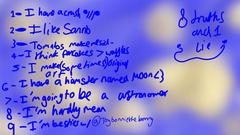 1- I have a crush
2- I like Sanrio
3- Tomatoes make me sick
4- I think pancakes > waffles
5- I make (sometimes) diging art
6- I have a hamster named moon
7- I'm going to be a astronomer
8- I'm hardly mean
9- I'm besties w/
8 truths and 1 lie